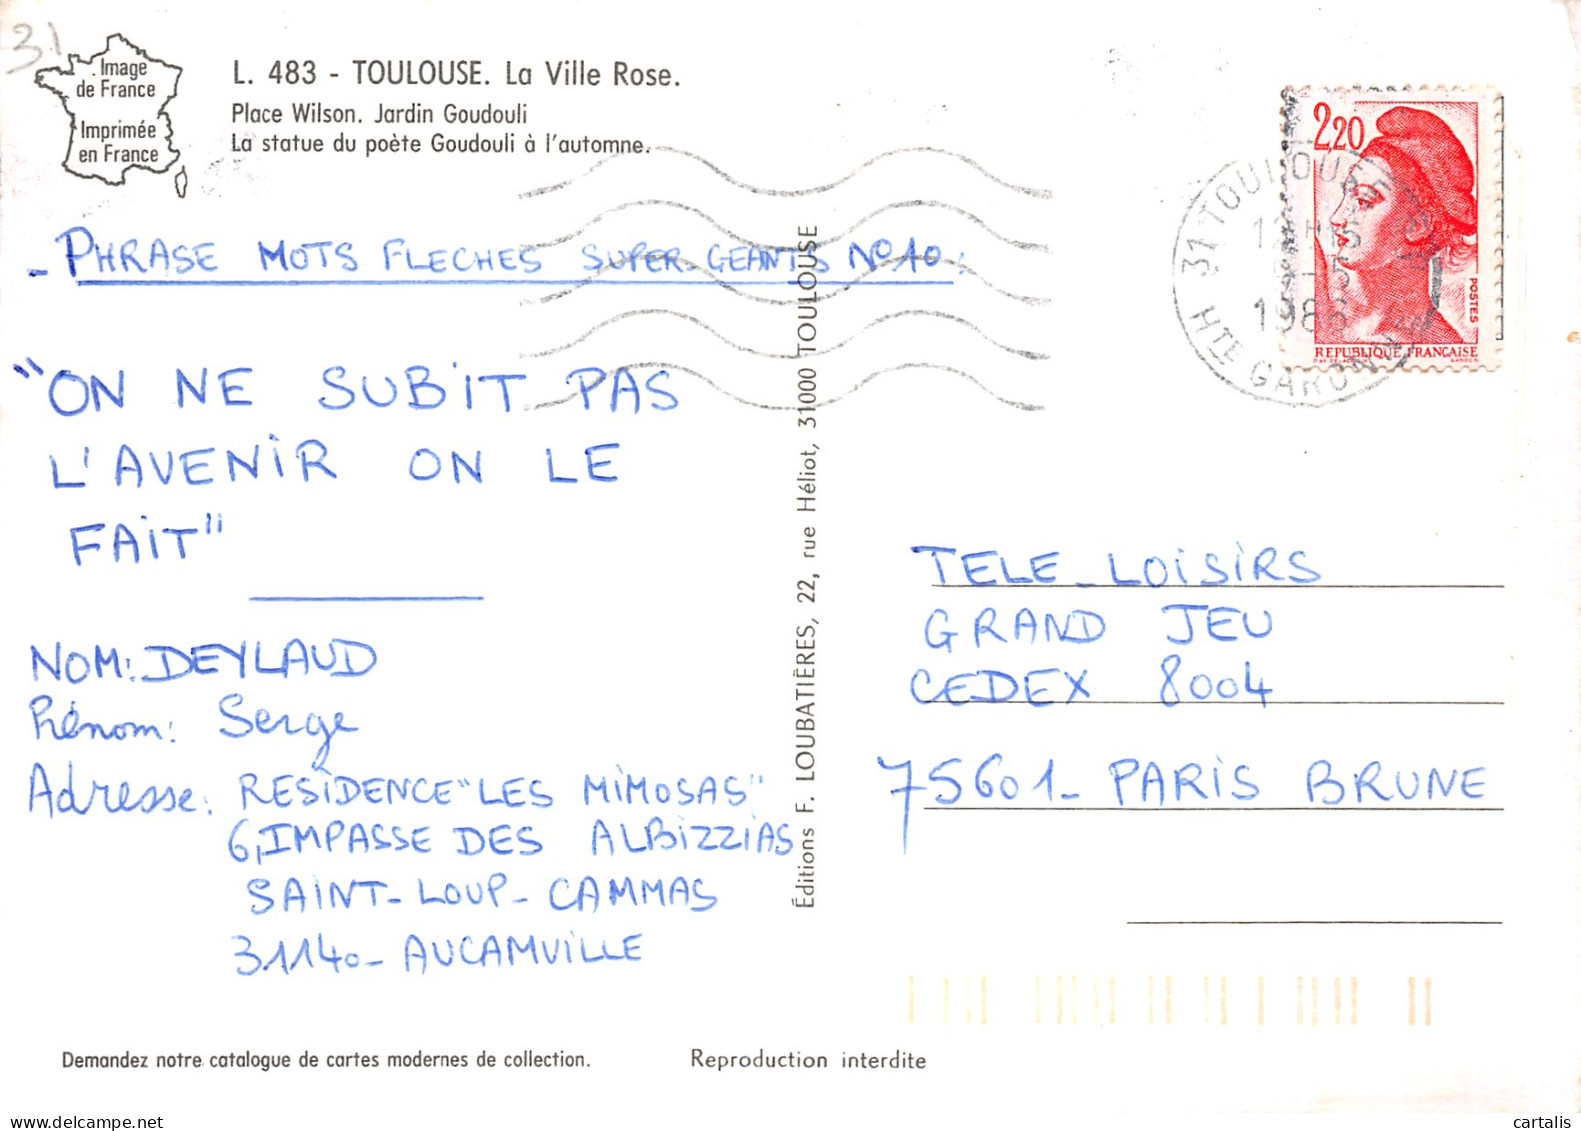 31
Image
de France
Imprimée
en France
L. 483 - TOULOUSE. La Ville Rose.
Place Wilson. Jardin Goudouli
La statue du poète Goudouli à l'automne.
- PHRASE MOTS FLECHES SUPER-GEANTS N°10:
"ON NE SUBIT PAS
L'AVENIR ON LE
FAIT"
NOM: DEYLAUD
Prénom: Serge
Adresse: RESIDENCE "LES MIMOSAS"
6, IMPASSE DES ALBIZZIAS
SAINT-LOUP-CAMMAS
31140- AUCAMVILLE
Éditions F. LOUBATIÈRES, 22, rue Héliot, 31000 TOULOUSE
2,20
POSTES
REPUBLIQUE FRANCAISE
31 TOULOUSE
HTE GARONNE
TELE-LOISIRS
GRAND JEU
CEDEX 8004
75601- PARIS BRUNE
Demandez notre catalogue de cartes modernes de collection.
Reproduction interdite
cartalis